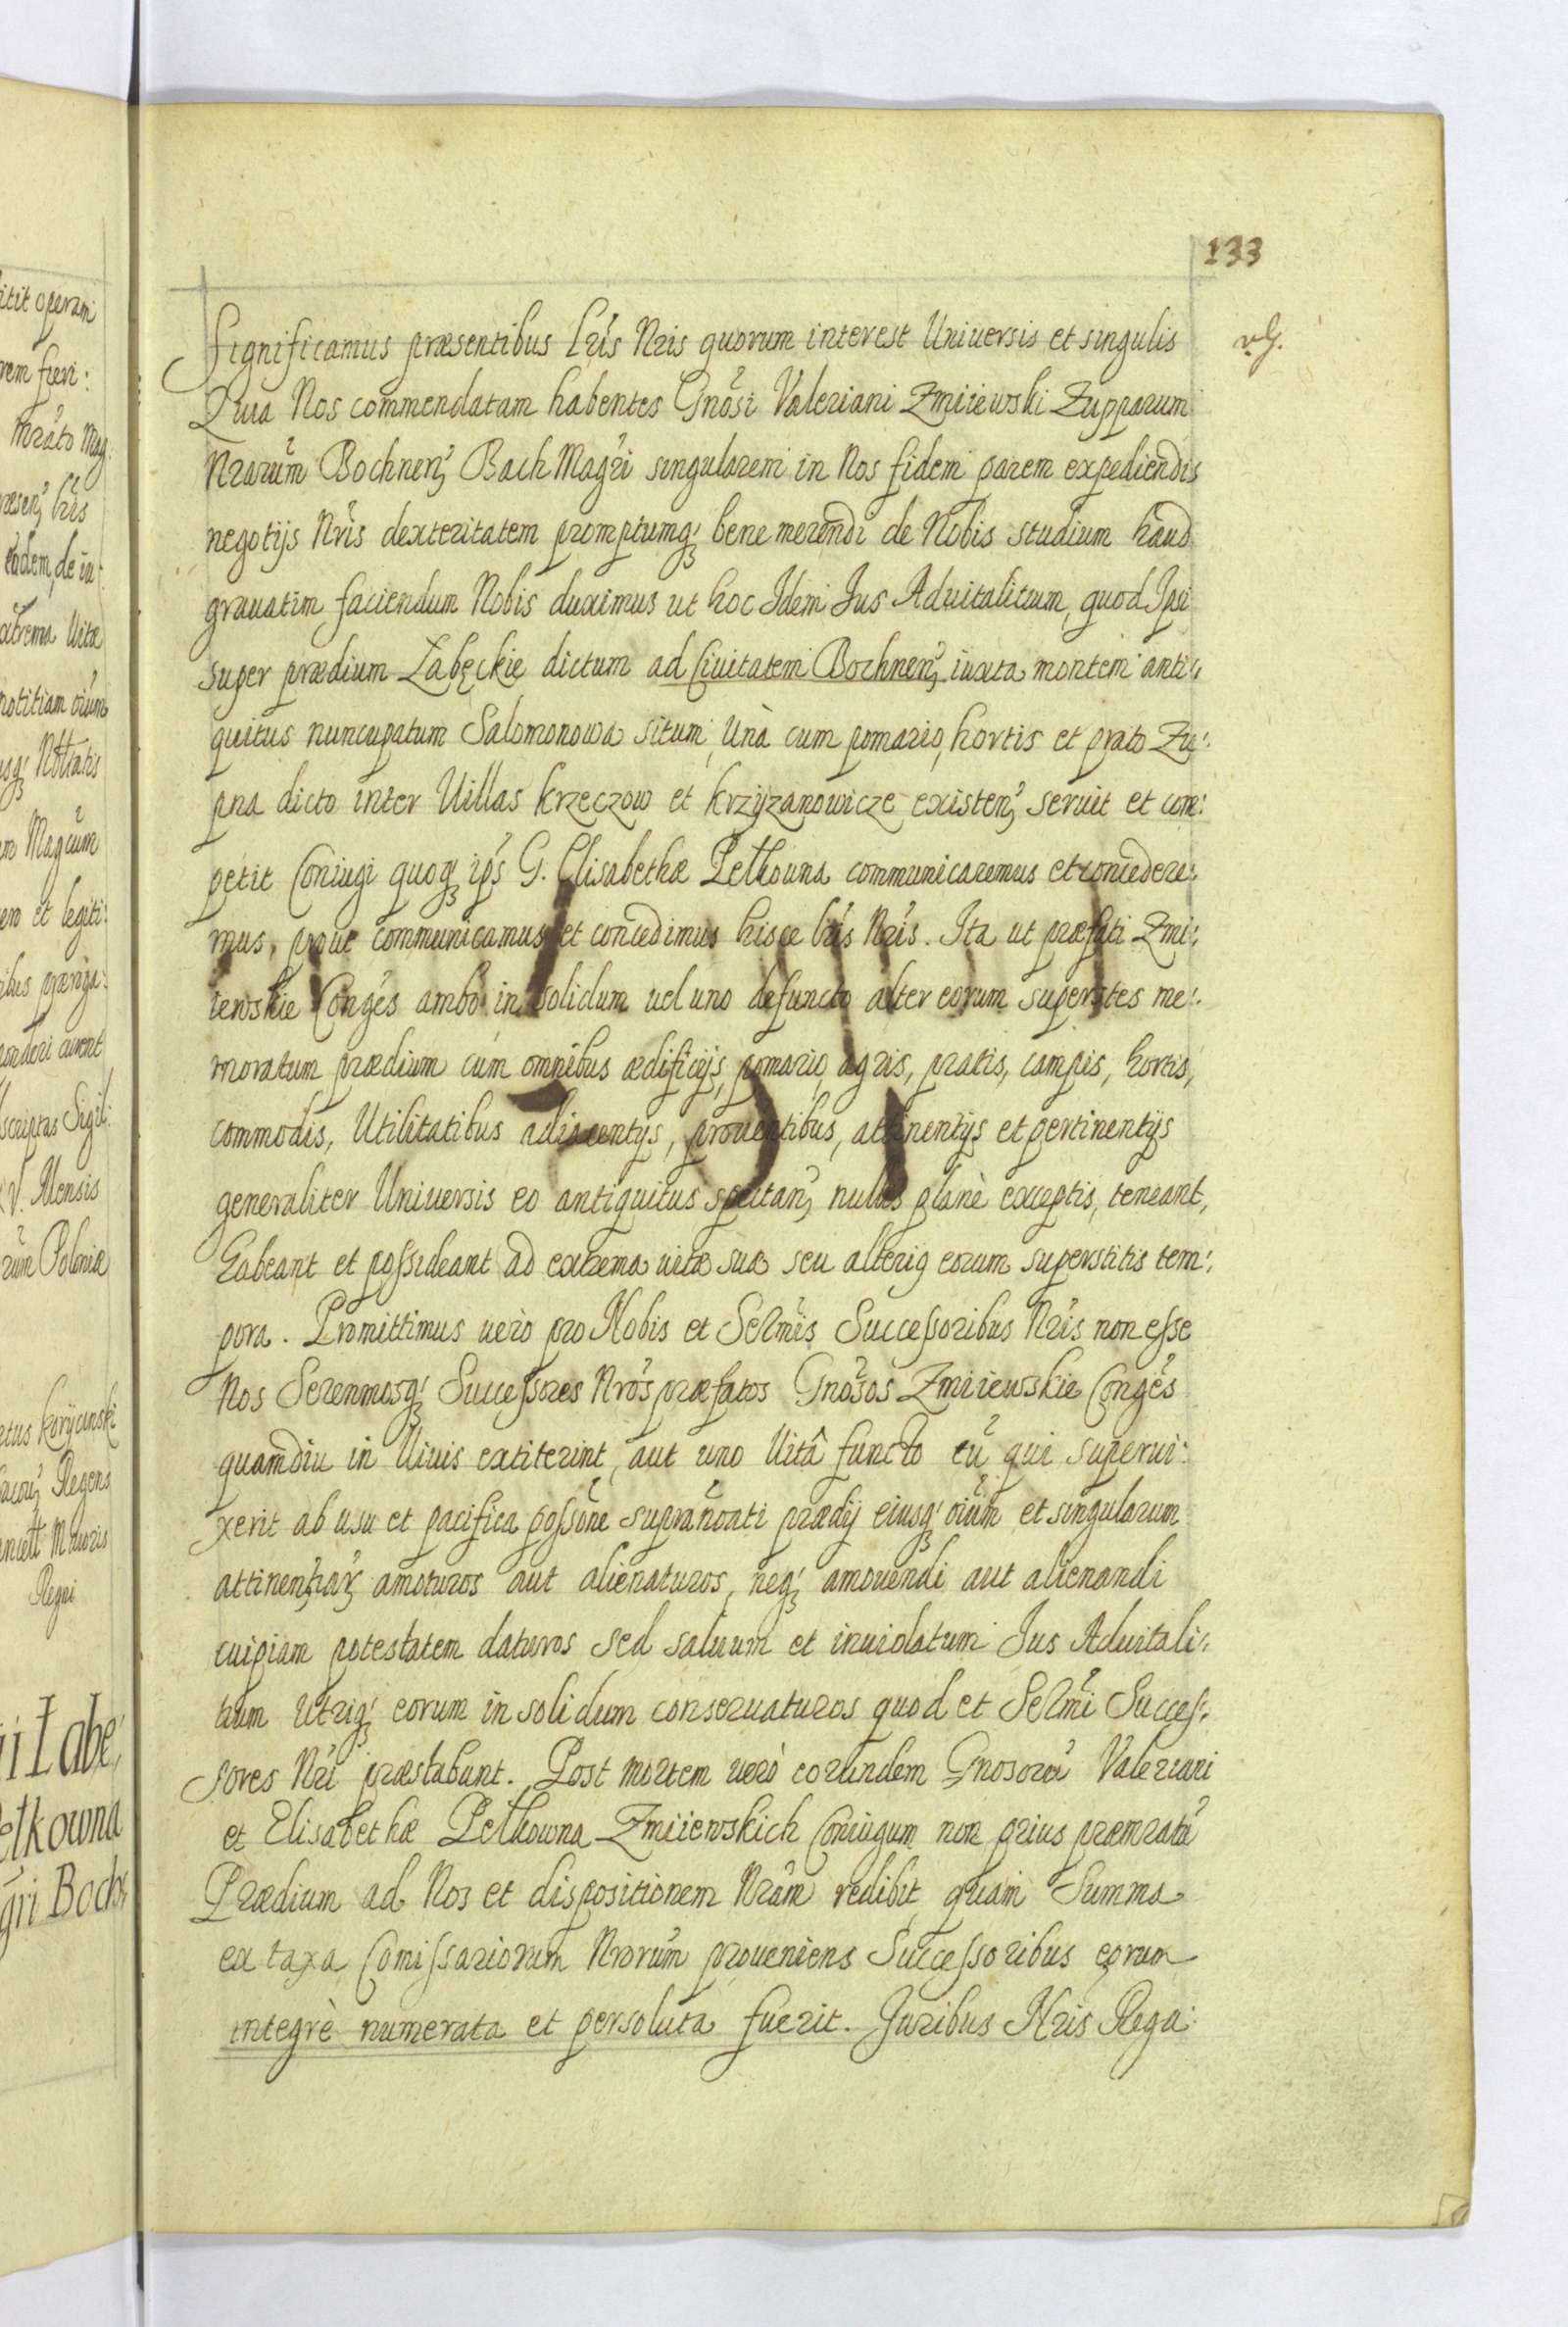 133
Significamus præsentibus Lrís Nris quorum interest Uniuersis et singulis
Quia Nos commendatam habentes Gnosi Valeriani Zmiiewski Zupparum
Nrarum Bochnen Bach Magri singularem in Nos fidem parem expediendis
negotijs Nris dexteritatem promptumq bene merendi de Nobis studium haud
grauatim faciendum Nobis duximus ut hoc Idem Jus Aduitalitium, quod Ipsi
super prædium Łabęckie dictum ad Ciuitatem Bochnen, iuxta montem anti:
quitus nuncupatum Salomonowa situm, Unà cum pomario, hortis et prato Zu:
pna dicto inter Uillas Krzeczow et Krzyżanowicze existen, seruit et com:
petit Coniugi quoq ips G. Elisabethæ Pełkouna communicaremus et concedere:
mus, prout communicamus et concedimus hisce lris Nris. Ita ut præfati Zmi:
iewskie Conges ambo in solidum uel uno defuncto alter eorum superstes me:
moratum prædium cum omnibus ædificijs, pomario, agris, pratis, campis, hortis,
commodis, Utilitatibus adiacentijs, prouentibus, attinentijs et pertinentijs
generaliter Uniuersis eo antiquitus spectan, nullis planè exceptis, teneant,
habeant et possideant ad extrema uitæ suæ seu alteriq eorum superstitis tem:
pora. Promittimus uerò pro Nobis et Sermis Successoribus Nris non esse
Nos Serenmosq Successores Nros præfatos Gnosos Zmiiewskie Conges
quamdiu in Uiuis extiterint, aut uno Uitâ functo eū qui superui:
xerit ab usu et pacifica possone supranoati prædij eiusq oium et singularum
attinen, amoturos aut alienaturos, neq amouendi aut alienandi
cuipiam potestatem daturos sed saluum et inuiolatum Jus Aduitali:
tium Utriq eorum in solidum conseruaturos quod et Sermi Succes:
sores Nri præstabunt. Post mortem uerò eorundem Gnosorū Valeriani
et Elisabethæ Pełkowna Zmiiewskich Coniugum non prius præmratū
Prædium ad Nos et dispositionem Nram redibit quam Summa
ex taxa Comissariorum Nrorum proueniens Successoribus eorum
integrè numerata et persoluta fuerit. Juribus Nris Rega: